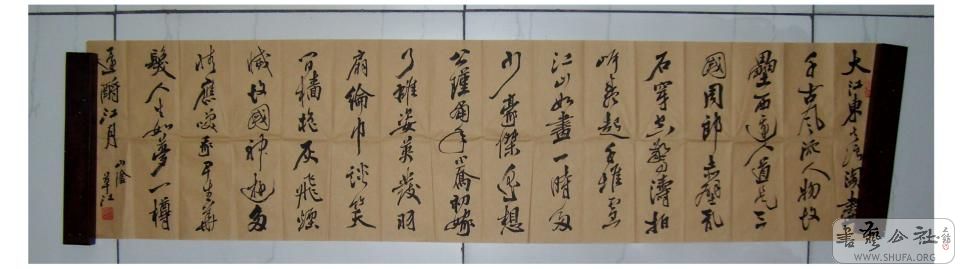 大江東去浪淘盡
千古風流人物故
壘西邊人道是三
國周郎赤壁亂
石穿空驚濤拍
岸卷起千堆雪
江山如畫一時多
少豪傑遙想
公瑾當年小喬初嫁
了雄姿英發羽
扇綸巾談笑
間檣櫓灰飛煙
滅故國神遊多
情應笑我早生華
髮人生如夢一樽
還酹江月
山陰
書藝公社
WWW.SHUFA.ORG